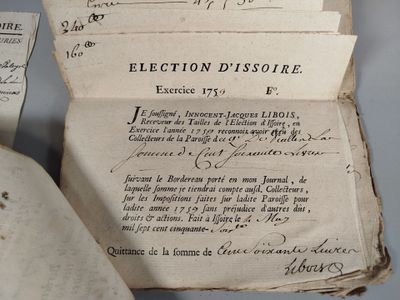 ISSOIRE.
240
160
ELECTION D'ISSOIRE.
Exercice 1759
JE soussigné, INNOCENT-JACQUES LIBOIS,
Receveur des Tailles de l'Election d'Issoire, en
Exercice l'année 1759 reconnois avoir reçu des
Collecteurs de la Paroisse de
Somme de Cent Soixante Livres
suivant le Bordereau porté en mon Journal, de
laquelle somme je tiendrai compte ausd. Collecteurs,
sur les Impositions faites sur ladite Paroisse pour
ladite année 1759 sans préjudice d'autres dûs,
droits & actions. Fait à Issoire le May
mil sept cent cinquante
Quittance de la somme de Cent Soixante Livres
Libois